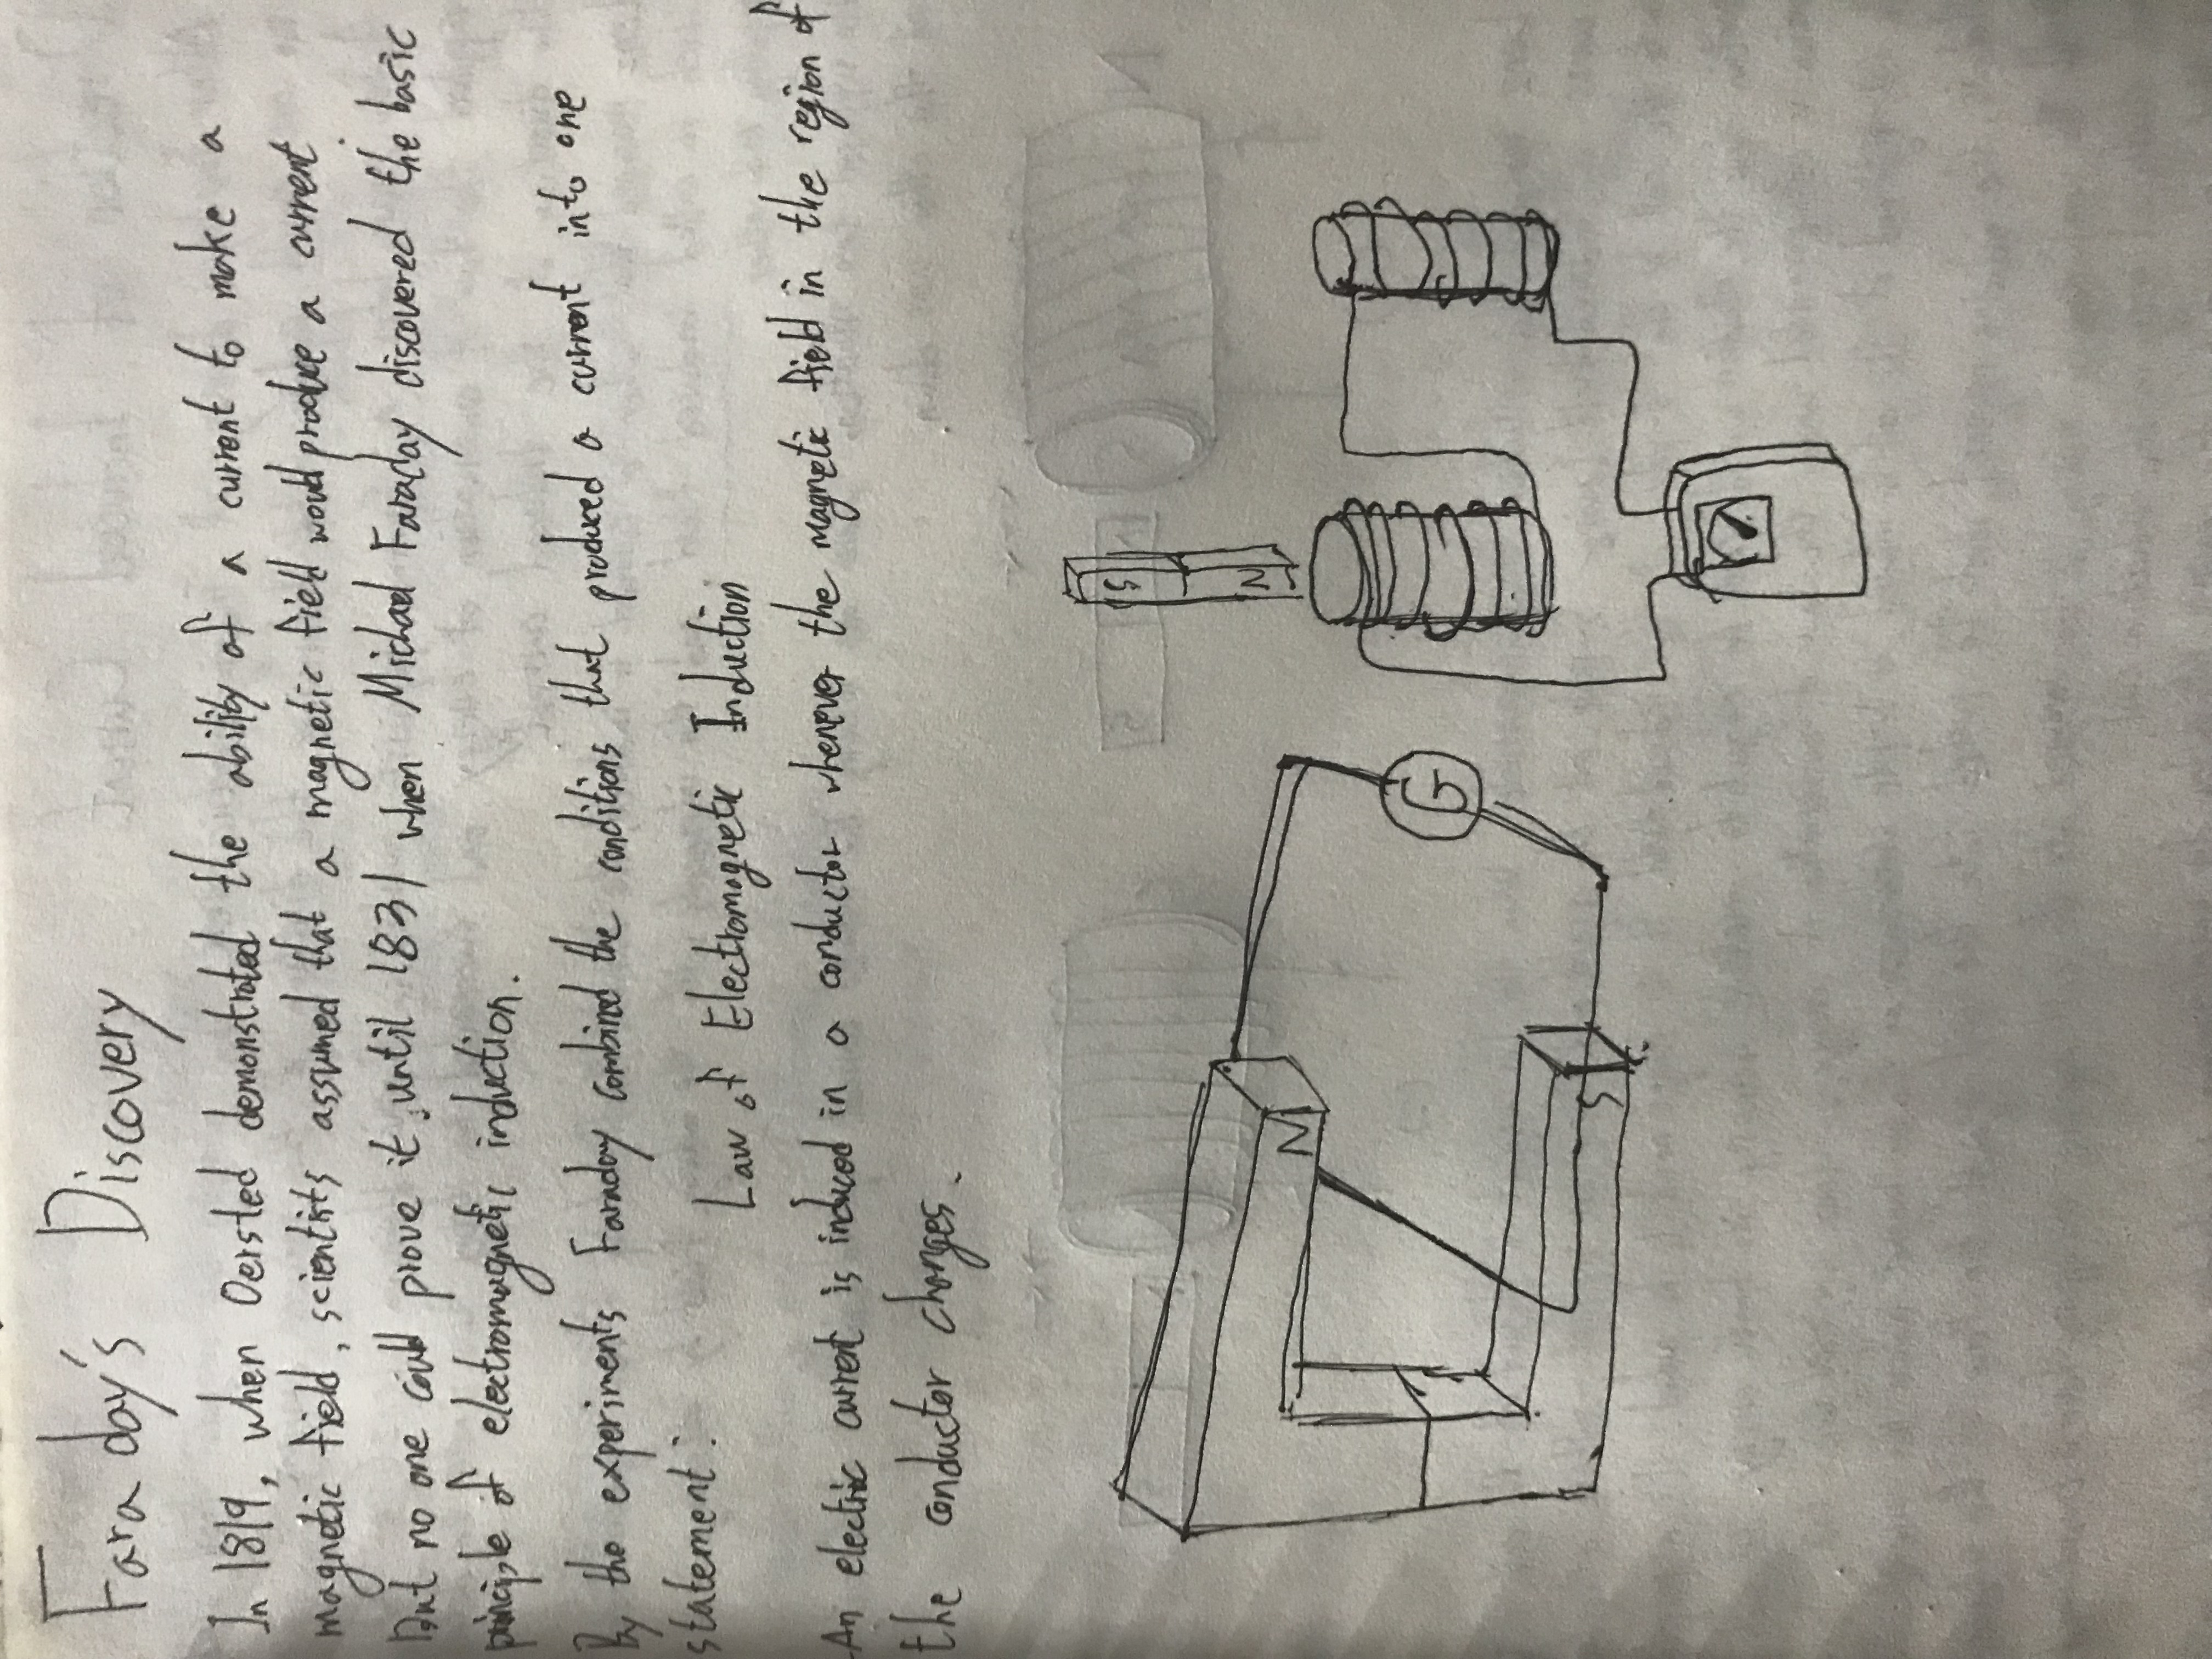 Faraday's Discovery
In 1819, when Oersted demonstrated the ability of a current to make a
magnetic field, scientists assumed that a magnetic field would produce a current
But no one could prove it until 1831 when Michael Faraday discovered the basic
principle of electromagnetic induction.
By the experiments Faraday combined the conditions that produced a current into one
statement:
Law of Electromagnetic Induction
An electric current is induced in a conductor whenever the magnetic field in the region of
the conductor changes.
S
N
N
S
G